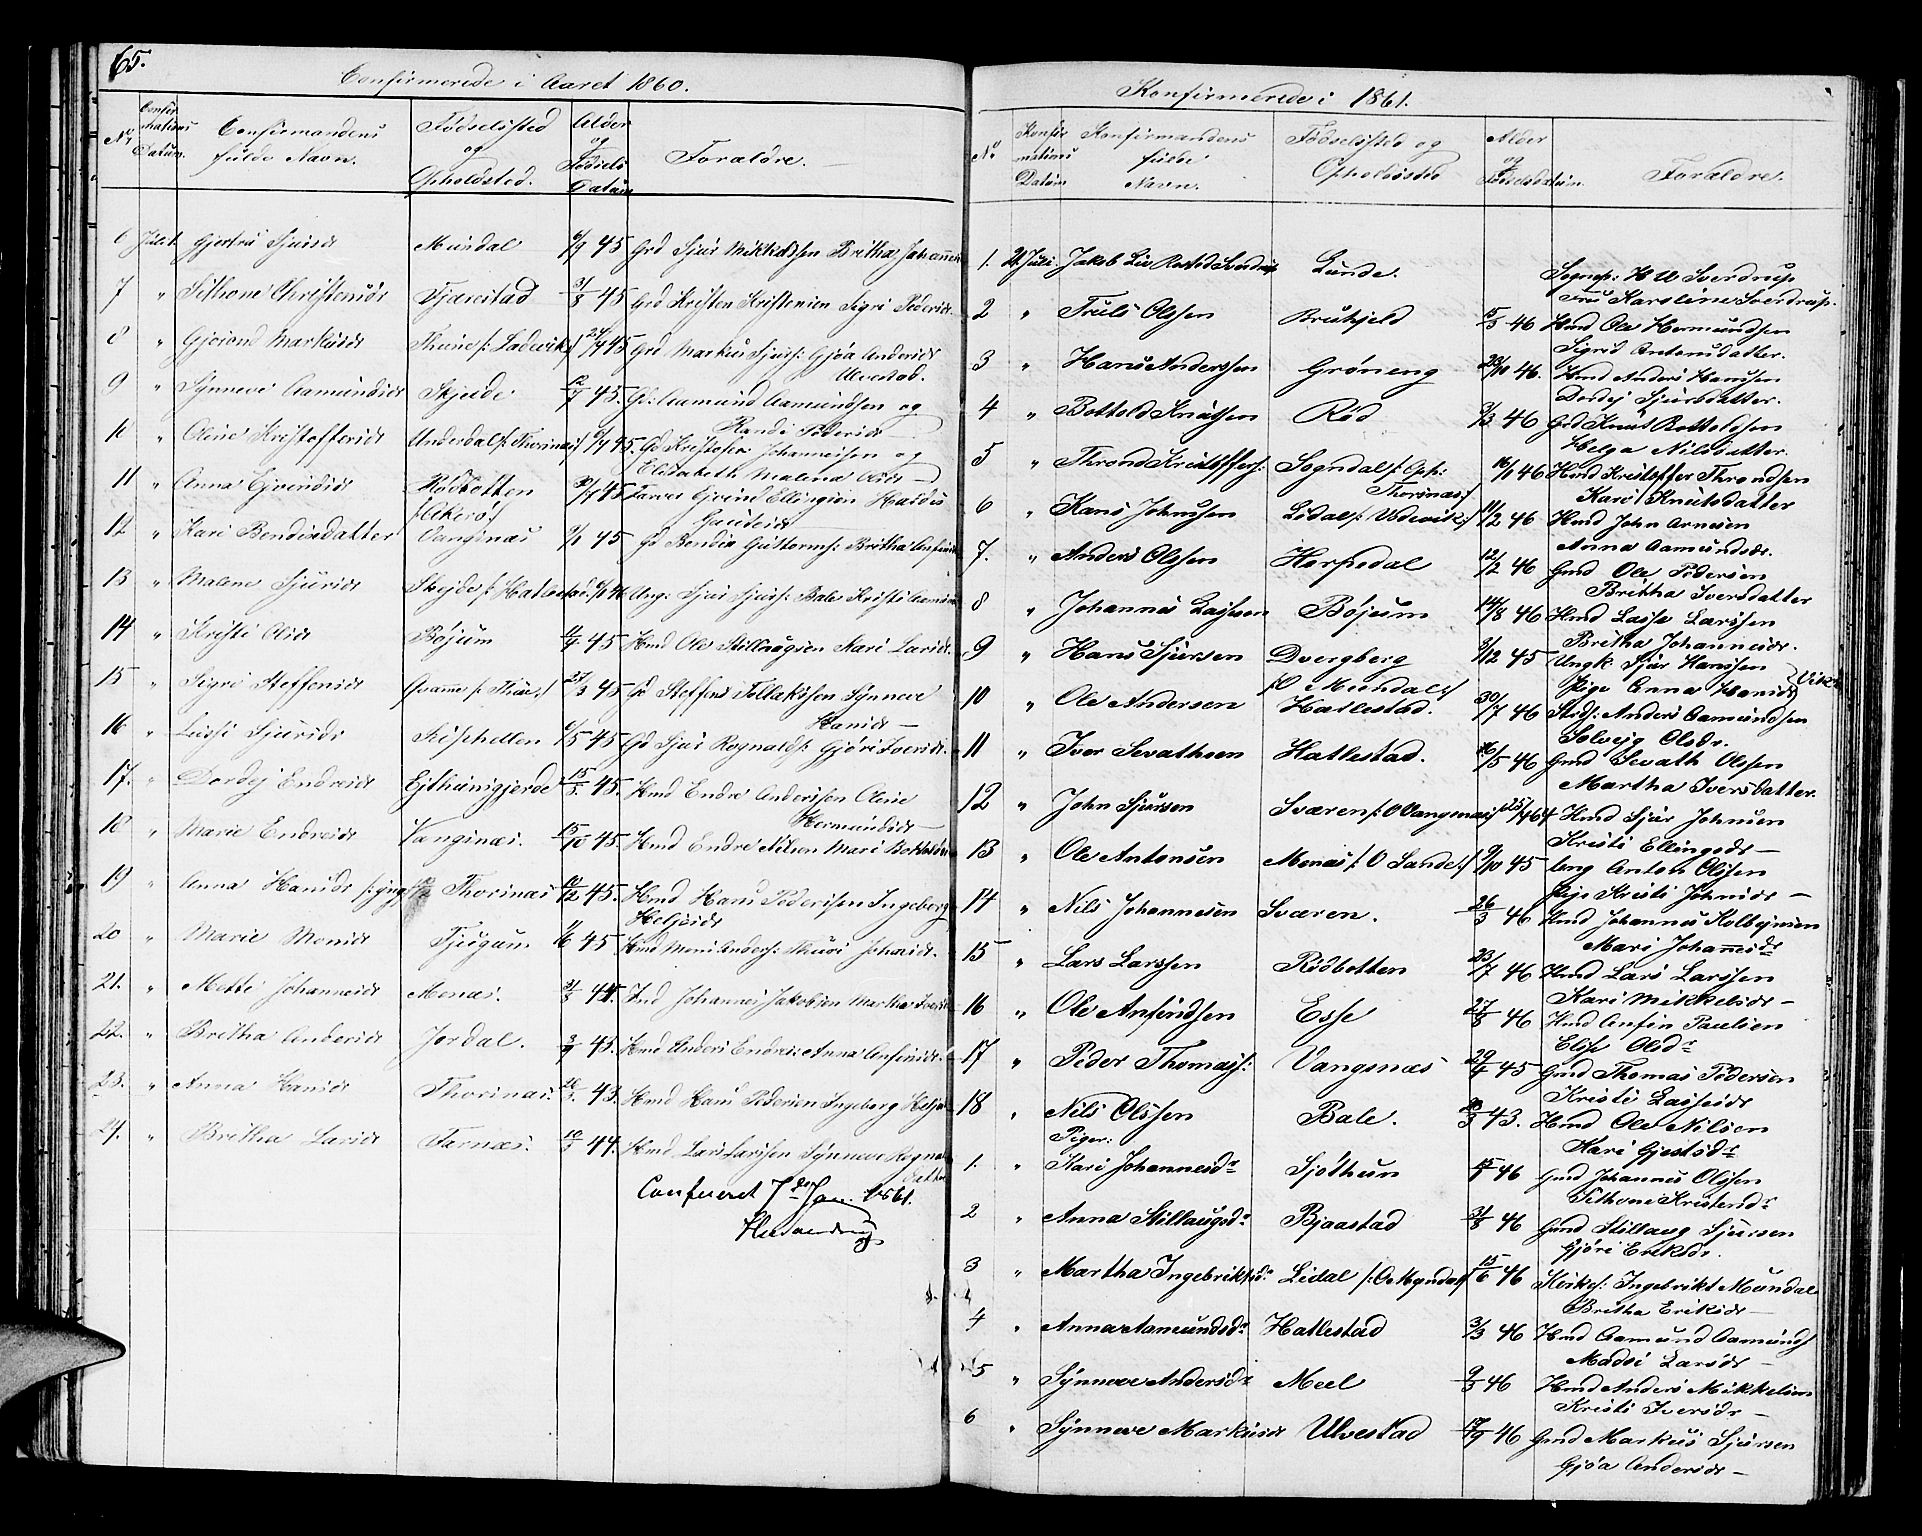 65.
Confirmerede i Aaret 1860.
No
Confirmations Datum.
Confirmandens fulde Navn.
Fødselssted og Opholdsted.
Alder og Fødsels Datum
Forældre.
6 Juli 1 Gjertrud Sjursdr Mundal 6/9 45 Grd Sjur Mikkelssen Britha Johannesd
7 " Sithone Christensdr Tjærestad 31/8 45 Grd Kristen Kristensen Sigri Pedersdr.
8 " Gjørond Markusdr Thune /: Ladevik :/ 24/7 45 Grd Markus Sjurs: Gjøa Andersdr
Ulvestad.
9 " Synneve Aamundsdr Skjæde 12/7 45. Gd: Aamund Aamundsen og
Randi Pedersdr
10 " Oline Kristoffersdr Underdal /: Thorsnæs :/ 45. Gd Kristofer Johannessen og
Elisabeth Malena Olsdr
11 " Anna Ejvindsdr Rødbotten 30/7 45 Farver Ejvind Ellingsen Haldis
/: Akerø :/ Gautesdr
12 " Kari Bendixdatter Vangsnæs 9/1 45 Gd Bendix Guttorms: Britha Anfinsd
13 " Malene Sjursdr Skejde /: Hatlestad. 6/1 46 Ung: Sjur Sjurs: Bale Kristi Aamun
14 " Kristi Olsdr Bøjum 11/4 45 Hmd Ole Stillaugsen Kari Larsdr.
15 " Sigri Steffensdr Qvamme /: Thue :/ 27/3 45 Gd Steffens Tollaksen Synneve
Hansdr
16 " Lussi Sjursdr 6/5 45 Gd Sjur Rognalds: Gjøri Iversdr.
17. " Dordej Endresdr Ejthunsgjerde 15/5 45. Hmd Endre Anderssen Oline
Hermundsdr
18 " Marie Endresdr Vangsnæs. 15/10 45. Hmd Endre Nilsen Mari Bottolds
19 " Anna Hansdr Thorsnæs 10/12 45. Hmd Hans Pederssen Ingeborg
Heljesdr
20 " Marie Monsdr Tjugum 1/6 45 Hmd Mons Anders: Johnsdr.
21. " Mette Johannesdr Menæs. 31/3 44. Ind Johannes Jakobsen Martha Iversdr
22. " Britha Andersdr Jordal. 3/7 45. Hmd Anders Endres: Anna Anfinsdr.
23. " Anna Hansdr Thorsnæs. 43. Hmd Hans Pedersen Ingeborg Helje
24. " Britha Larsdr Farnæs. 10/3 44. Hmd Lars Larssen Synneve Rogna
datter
Confereret 7de Jan. 1861.
Konfirmerede i 1861.
No
Konfirmations Datum
Konfirmandens fulde Navn.
Fødselssted og Opholdssted
Alder og Fødselsdatum.
Forældre.
1. 21 Juli Jakob Liv Rosted Sverdrup Lunde. Sognep: H U Sverdrup
Fru Karoline Sverdrup.
2 " Truls Olssen Brekjeld 15/3 46 Hmd Ole Hermundsen
Sigrid Antonsdatter.
3 " Hans Anderssen Grøneng 23/10 46. Hmd Anders Hanssen
Dordej Sjursdatter.
4 " Bottold Knutsen Rød 9/3 46 Grd Knut Bottoldsen
Helga Nilsdatter
5 " Thrond Kristoffers: Sogndal /: Oph: 16/1 46 Hmd Kristoffer Throndsen
Thorsnæs :/ Kari Knutsdatter
6 " Hans Johnssen Lidal /: Vodevik :/ 11/2 46 Hmd John Arnesen
Anna Aamundsdr.
7. " Anders Olssen Horpedal 12/2 46 Gmd Ole Pedersen
Britha Iversdatter
8 " Johannes Lassesen Bøjum 14/8 46 Hmd Lasse Larssen
Britha Johannesdr.
9 " Hans Sjursen Dvergberg 9/12 45 Ungk Sjur Hanssen
/: O Mundal :/ Pige Anna Hansdr Vik:
10 " Ole Andersen Hatlestad. 30/7 46 Strds: Anders Aamundsen
Solvejg Olsdr.
11 " Iver Sevathsen Hatlestad. 16/5 46 Gmd Sevath Olssen
Martha Iversdatter
12 " John Sjursen Sværen /: O Vangsnæs :/ 25/1 46 Hmd Sjur Johnsen
Kristi Ellingsdr
13 " Ole Antonsen Menæs /: O Sande :/ 9/10 45 Ung Anton Olssen
Pige Kristi Johnsdr
14 " Nils Johannesen Sværen. 26/3 46 Hmd Johannes Kolbejnsen
Mari Johannesdr
15 " Lars Larssen Rødbotten 23/7 46 Hmd Lars Larssen
Kari Mikkelsdr
16 " Ole Anfindsen Esse 27/8 46 Hmd Anfin Paulsen
Elise Olsdr
17 " Peder Thomass: Vangsnæs 29/4 45 Gmd Thomas Pedersen
Kristi Lassesdr
18 " Nils Olssen Bale. 43. Hmd Ole Nilsen
Kari Gjestsdr
Piger:
1. " Kari Johannesdr Sjøthun 15/1 46 Gmd Johannes Olssen
Sithone Kristensdr
2 " Anna Stillaugsdr Bjaastad 31/8 46 Gmd Stillaug Sjursen
Gjøri Eriksdr.
3 " Martha Ingebriktsdr Lidal /: O Myndal :/ 15/6 46 Kirkes: Ingebrikt Mundal
Britha Eriksdr
4 " Anna Aamundsdr Hatlestad 3/3 46 Hmd Aamund Aamunds
Madsi Larsdr
5 " Synneve Andersdr Meel 9/3 46 Hmd Anders Mikkelsen
Kristi Iversdr
6 " Synneve Markusdr Ulvestad 17/9 46 Gmd Markus Sjursen
Gjøa Andersdr